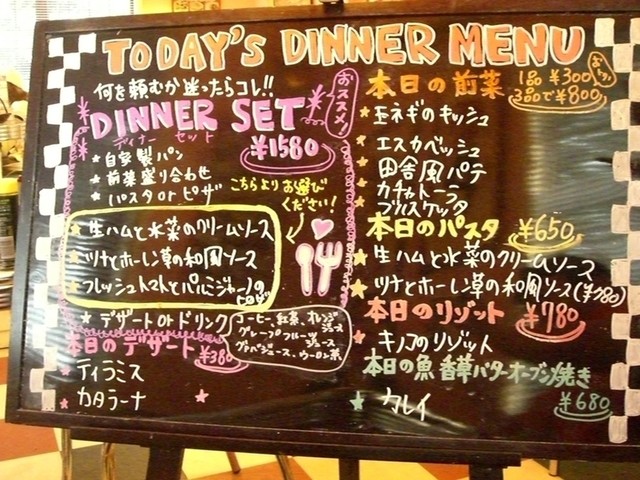 TODAY'S DINNER MENU
何を頼むか迷ったらコレ!!
おススメ!
DINNER SET
ディナー セット
¥1580
★自家製パン
★前菜盛り合わせ
★パスタorピザ
こちらよりお選び
ください!
★生ハムと水菜のクリームソース
★ツナとホーレン草の和風ソース
★フレッシュトマトとパルミジャーノの
ピザ
★デザートorドリンク
コーヒー、紅茶、オレンジ
ジュース
グレープフルーツ
ジュース
グァバジュース、ウーロン茶
本日のデザート ¥380
★ティラミス
★カタラーナ
本日の前菜 1品¥300
3品で¥800
おトク!
★玉ネギのキッシュ
★エスカベッシュ
★田舎風パテ
★カチャトーラ
★ブルスケッタ
本日のパスタ ¥650
★生ハムと水菜のクリームソース
★ツナとホーレン草の和風ソース(¥780)
本日のリゾット ¥780
★キノコのリゾット
本日の魚 香草バターオーブン焼き
¥680
★カレイ